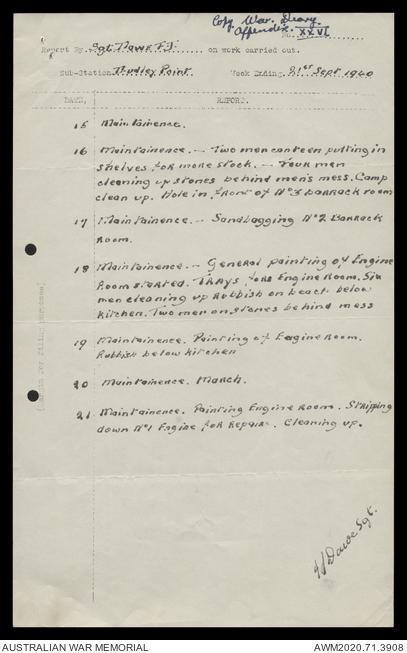 Copy War Diary.
Appendix. No. XXVI
Report By. Sgt Dawe F.J. on work carried out.
Sub-Station Dudley Point. Week Ending 21st Sept 1940
DATE. REPORT.
15 Maintainence.
16 Maintainence. - Two men canteen putting in
shelves for more stock. - Four men
cleaning up stones behind men's mess. Camp
clean up. Hole in front of No3 barrack room
17 Maintainence. - Sandbagging No2 Barrack
Room.
18 Maintainence. - General painting of Engine
Room started. Trays for Engine Room. Six
men cleaning up Rubbish on beach below
kitchen. Two men on stones behind mess
19 Maintainence. Painting of Engine Room.
Rubbish below kitchen
20 Maintainence. March.
21 Maintainence. Painting Engine Room. Stripping
down No1 Engine for Repairs. Cleaning up.
Dawe Sgt.
AUSTRALIAN WAR MEMORIAL
AWM2020.71.3908